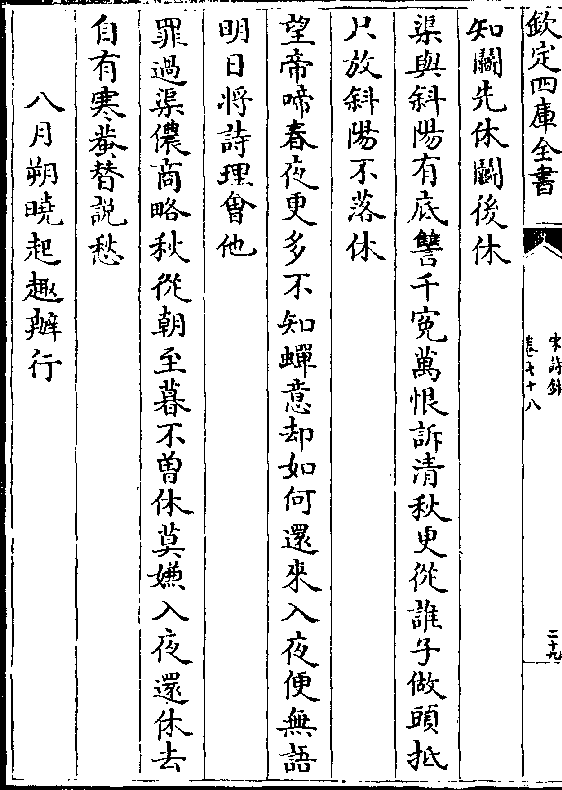 欽定四庫全書
宋詩鈔
卷七十八
二十九
知鬭先休鬭後休
渠與斜陽有底讐千寃萬恨訴清秋更從誰子做頭抵
只放斜陽不落休
望帝啼春夜更多不知蟬意却如何還來入夜便無語
明日將詩理會他
罪過渠儂商略秋從朝至暮不曽休莫嫌入夜還休去
自有寒蛩替説愁
八月朔曉起趣辦行